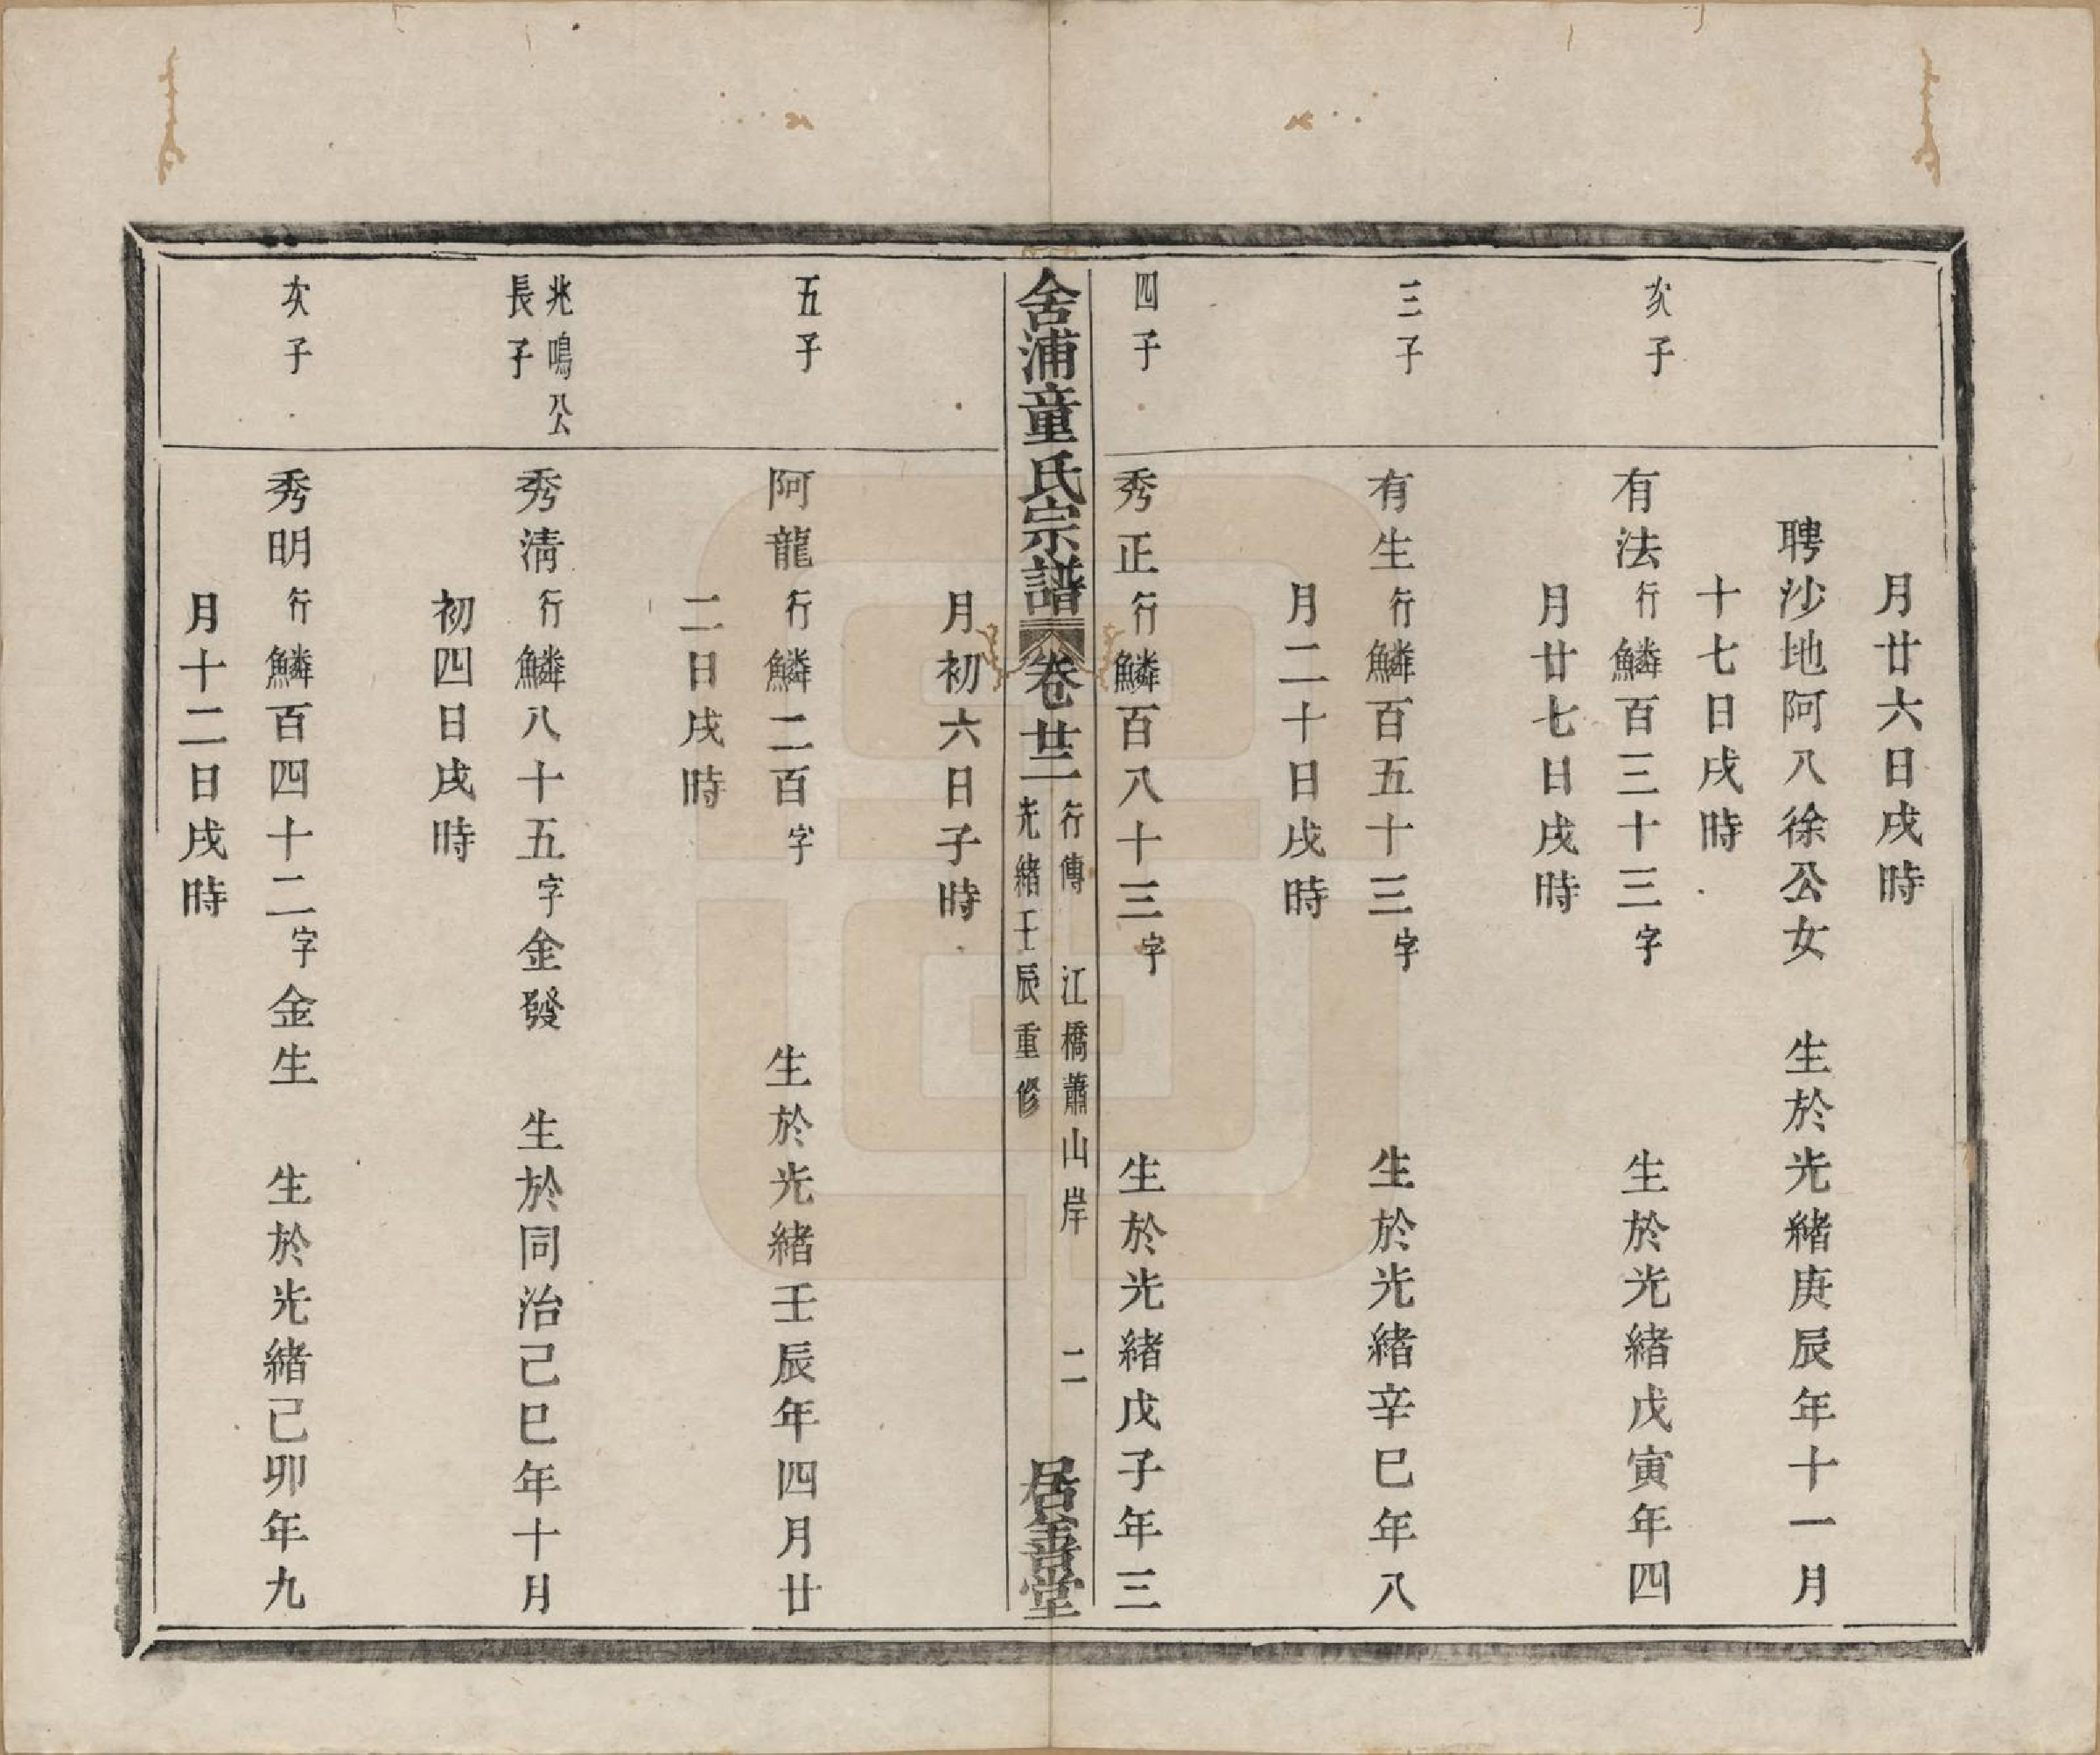 月廿六日戌時
聘沙地阿八徐公女 生於光緒庚辰年十一月
十七日戌時
次子
有法行鱗百三十三字 生於光緒戊寅年四
月廿七日戌時
三子
有生行鱗百五十三字 生於光緒辛巳年八
月二十日戌時
四子
秀正行鱗百八十三字 生於光緒戊子年三
舍浦童氏宗譜 卷廿三 行傳 江橋蕭山岸 二 居善堂
光緒壬辰重修
月初六日子時
五子
阿龍行鱗二百字 生於光緒壬辰年四月廿
二日戌時
兆鳴公
長子
秀清行鱗八十五字金發 生於同治己巳年十月
初四日戌時
次子
秀明行鱗百四十二字金生 生於光緒己卯年九
月十二日戌時